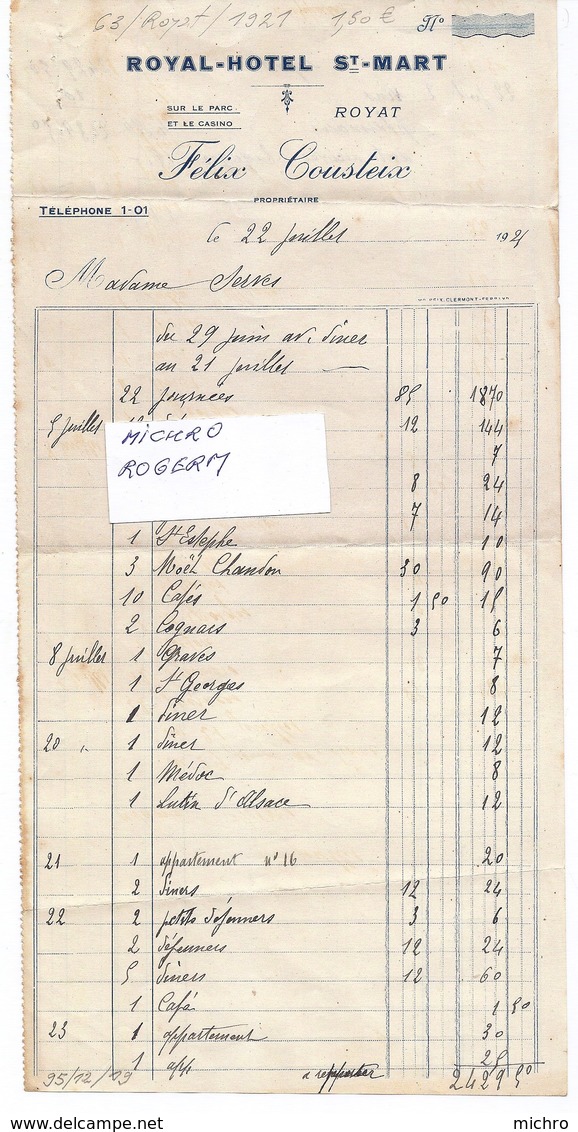 63/Royat/1921 1,50 € N°
ROYAL-HOTEL ST-MART
SUR LE PARC
ET LE CASINO
ROYAT
Félix Cousteix
PROPRIÉTAIRE
TÉLÉPHONE 1-01
le 22 juillet 1921
Madame Serves
du 29 juin av. diner
au 21 juillet —
22 journées 85 1870
5 juillet 12 144
MICHRO 7
ROGERM 8 24
7 14
1 St Estephe 10
3 Moët Chandon 30 90
10 Cafés 1 50 15
2 Cognacs 3 6
8 juillet 1 Graves 7
1 St Georges 8
1 diner 12
20 " 1 diner 12
1 Médoc 8
1 d'Alsace 12
21 1 appartement n° 16 20
2 diners 12 24
22 2 petits déjeuners 3 6
2 déjeuners 12 24
5 diners 12 60
1 Café 1 50
23 1 appartement 30
1 app 25
95/12/09 a reporter 2429 50
michro